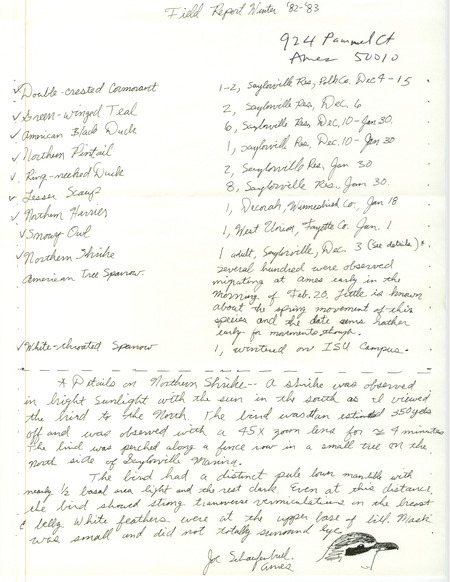 Field Report Winter '82-'83
924 Pammel Ct
Ames 50010
✓Double-crested Cormorant 1-2, Saylorville Res, Polk Co. Dec 4-15
✓Green-winged Teal 2, Saylorville Res, Dec. 6
✓American Black Duck 6, Saylorville Res, Dec. 10-Jan 30
✓Northern Pintail 1, Saylorville Res, Dec. 10-Jan 30
✓Ring-necked Duck 2, Saylorville Res, Jan 30
✓Lesser Scaup 8, Saylorville Res, Jan 30.
✓Northern Harrier 1, Decorah, Winneshiek Co, Jan 18
✓Snowy Owl 1, West Union, Fayette Co. Jan. 1
✓Northern Shrike 1 adult, Saylorville, Dec. 3 (see details)*
American Tree Sparrow. several hundred were observed
migrating at Ames early in the
morning of Feb. 20. Little is known
about the spring movement of this
species and the date seems rather
early for movements though.
✓White-throated Sparrow 1, wintered on ISU Campus.
* Details on Northern Shrike-- A shrike was observed
in bright sunlight with the sun in the south as I viewed
the bird to the North. The bird was estimated 350 yds
off and was observed with a 45X zoom lens for ≈ 4 minutes
The bird was perched along a fence row in a small tree on the
north side of Saylorville Marina.
The bird had a distinct pale lower mandible with
nearly ½ basal area light and the rest dark. Even at this distance
the bird showed strong transverse vermiculations in the breast
& belly. White feathers were at the upper base of bill. Mask
was small and did not totally surround eye.
Joe Schaufenbuel
Ames